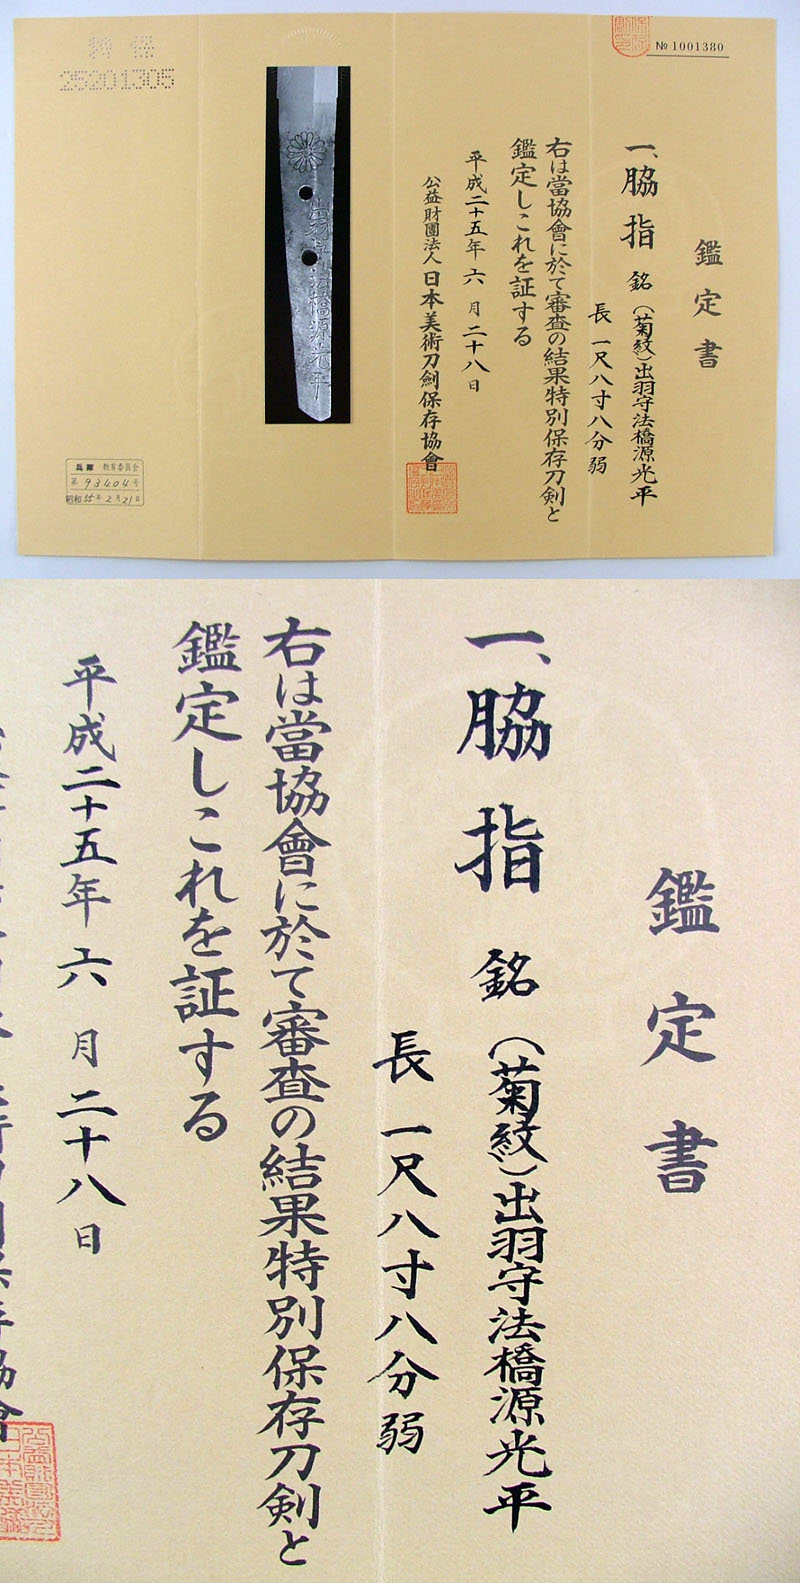 № 1001380
鑑定書
一、脇指 銘(菊紋)出羽守法橋源光平
長一尺八寸八分弱
右は當協會に於て審査の結果特別保存刀剣と
鑑定しこれを証する
平成二十五年六月二十八日
公益財團法人日本美術刀劍保存協會
特保
25201305
兵庫 教育委員会
第93404号
昭和55年2月21日
鑑定書
一、脇指 銘(菊紋)出羽守法橋源光平
長一尺八寸八分弱
右は當協會に於て審査の結果特別保存刀剣と
鑑定しこれを証する
平成二十五年六月二十八日